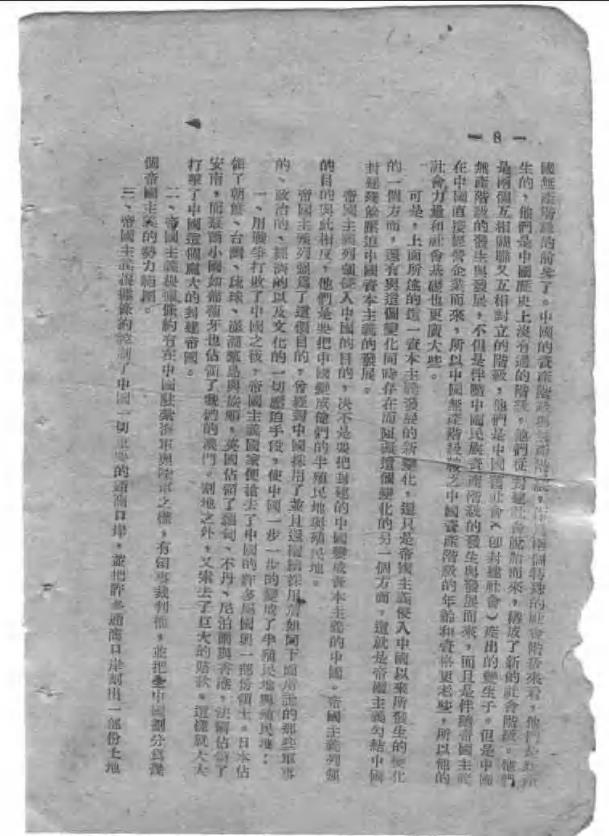 — 8 —
國無產階級的前身了。中國的資產階級與無產階級，作爲兩個特殊的社會階級來看，他們是新產
生的，他們是中國歷史上沒有過的階級，他們從封建社會脫胎而來，構成了新的社會階級。他們
是兩個互相關聯又互相對立的階級，他們是中國舊社會（即封建社會）產出的孿生子。但是中國
無產階級的發生與發展，不但是伴隨中國民族資產階級的發生與發展而來，而且是伴隨帝國主義
在中國直接經營企業而來，所以中國無產階級較之中國資產階級的年齡和資格更老些，所以他的
社會力量和社會基礎也更廣大些。
可是，上面所述的這一資本主義發展的新變化，還只是帝國主義侵入中國以來所發生的變化
的一個方面，還有與這個變化同時存在而阻礙這個變化的另一個方面，這就是帝國主義勾結中國
封建殘餘壓迫中國資本主義的發展。
帝國主義列強侵入中國的目的，決不是要把封建的中國變成資本主義的中國。帝國主義列強
的目的與此相反，他們是要把中國變成他們的半殖民地與殖民地。
帝國主義列強爲了這個目的，曾經對中國採用了並且還繼續採用着如同下面所述的那些軍事
的、政治的、經濟的以及文化的一切壓迫手段，使中國一步一步的變成了半殖民地與殖民地：
一、用戰爭打敗了中國之後，帝國主義國家便搶去了中國的許多屬國與一部份領土。日本佔
領了朝鮮、台灣、琉球、澎湖羣島與旅順，英國佔領了緬甸、不丹、尼泊爾與香港，法國佔領了
安南，而蕞爾小國如葡萄牙也佔領了我們的澳門。割地之外，又索去了巨大的賠款。這樣就大大
打擊了中國這個龐大的封建帝國。
二、帝國主義根據條約有在中國駐紮海軍與陸軍之權，有領事裁判權，並把全中國劃分爲幾
個帝國主義的勢力範圍。
三、帝國主義根據條約控制了中國一切重要的通商口岸，並把許多通商口岸劃出一部份土地